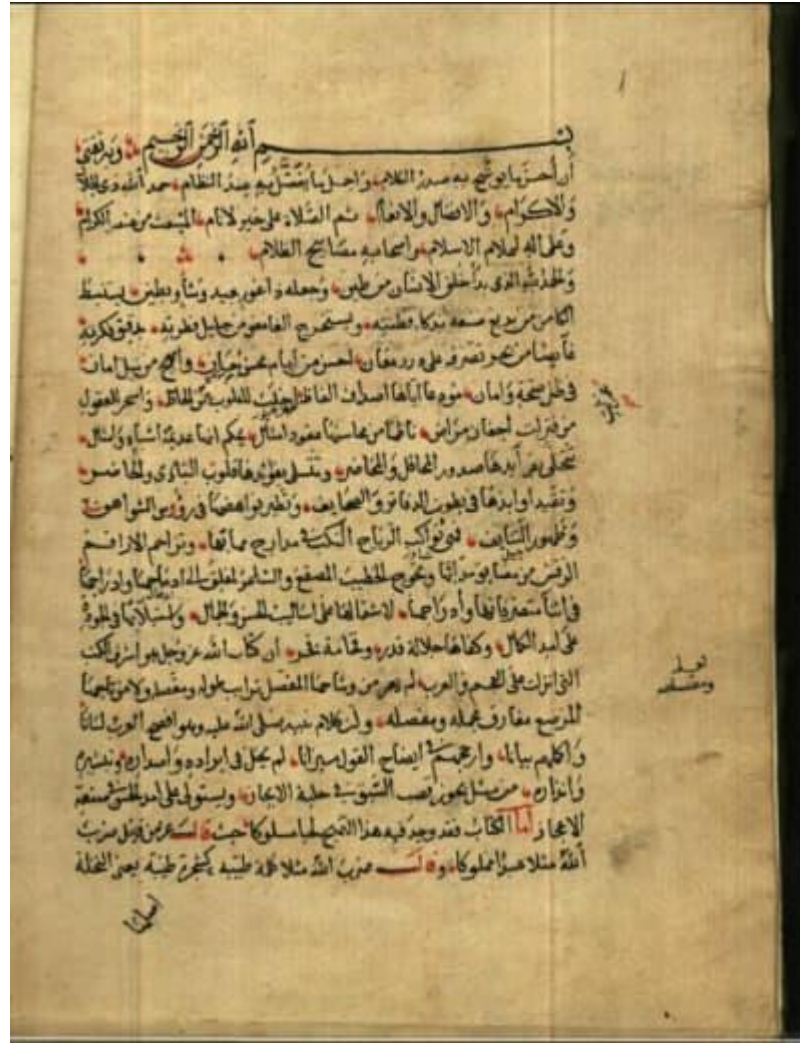 بسم الله الرحمن الرحيم وبه ثقتي
أن أحسن ما يوشح به صدر الكلام وأجمل ما يفصل به عقد النظام حمد الله ذي الجلال
والاكرام والافضال والانعام ثم الصلاة على خير الانام المنتخب من الكرام
وعلى آله اعلام الاسلام واصحابه مصابيح الظلام
والحمد لله الذي بدأ خلق الانسان من طين وجعله ذا غور بعيد وشأو بطين يستنبط
الكامن من بديع صنعته بذكاء فطنته ويستخرج الغامض من جليل فطرته بدقيق فكرته
من فترات اجفان مراض ناظما من محاسنها عقود امثال يحكم انها عديمة اشباه وامثال
تتحلى بفرائدها صدور المحافل والمحاضر وتتسلى بفوائدها قلوب البادي والحاضر
وتقيد اوابدها في بطون الدفاتر والصحائف وتطير نواهضها في رؤوس الشواهق
وظهور التنائف فهي تواكب الرياح النكب في مدارج مهابها وتزاحم الاراقم
الرقش في مضايق مدابها وتحوج الخطيب المصقع والشاعر المفلق الى ادماجها وادراجها
في اثناء متصرفاتها وأدراجها لاشتمالها على اساليب الحسن والجمال واستيلائها في الجودة
على امد الكمال وكفاها جلالة قدر وفخامة فخر أن كتاب الله عز وجل هو اشرف الكتب
التي انزلت على العجم والعرب لم يعر من وشاحها المفصل ترائب طواله ومفصله ولا من تاجها
المرصع مفارق مجمله ومفصله وأن كلام نبيه صلى الله عليه وهو افصح العرب لسانا
واكملهم بيانا وارجحهم في ايضاح القول ميزانا لم يخل في ايراده واصداره وتبشيره
وانذاره من مثل يحوز قصب السبق في حلبة الايجاز ويستولي على امد الحسن في صنعة
الاعجاز أما الكتاب فقد وجد فيه هذا النهج لحبا مسلوكا حيث قال عز من قائل ضرب
الله مثلا عبدا مملوكا وقال ضرب الله مثلا كلمة طيبة كشجرة طيبة يعني النخلة